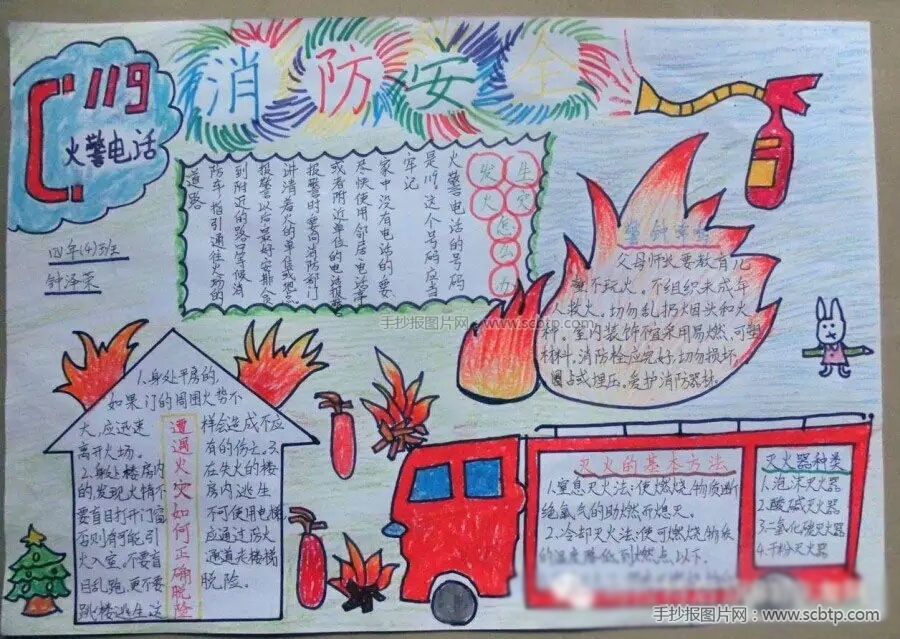 消防安全
119
火警电话
四年(4)班
钟泽荣
发生
火灾
怎么办
火警电话的号码
是119,这个号码应当
牢记
家中没有电话的,要
尽快使用邻居、电话亭
或者附近单位的电话报警
报警时要向消防部门
讲清着火的单位或地点
报警以后,最好安排人员
到附近的路口等候消
防车,指引通往火场的
道路
父母师长要教育儿
童不玩火。不组织未成年
人救火。切勿乱扔烟头和火
种。室内装饰不宜采用易燃、可燃
材料,消防栓应完好,切勿损坏、
圈占或埋压。爱护消防器材。
手抄报图片网:www.scbtp.com
1.身处平房的,
如果门的周围火势不
大,应迅速
离开火场。
2.身处楼房内
的,发现火情不
要盲目打开门窗
否则有可能引
火入室。不要盲
目乱跑、更不要
跳楼逃生,这
遭遇火灾如何正确脱险
样会造成不应
有的伤亡。3.
在失火的楼
房内逃生
不可使用电梯
应通过防火
通道走楼梯
脱险。
灭火的基本方法
1.窒息灭火法:使燃烧物质断
绝氧气的助燃而熄灭。
2.冷却灭火法:使可燃烧物质
的温度降低到燃点以下,
灭火器种类
1.泡沫灭火器
2.酸碱灭火器
3.二氧化碳灭火器
4.干粉灭火器
手抄报图片网:www.scbtp.com